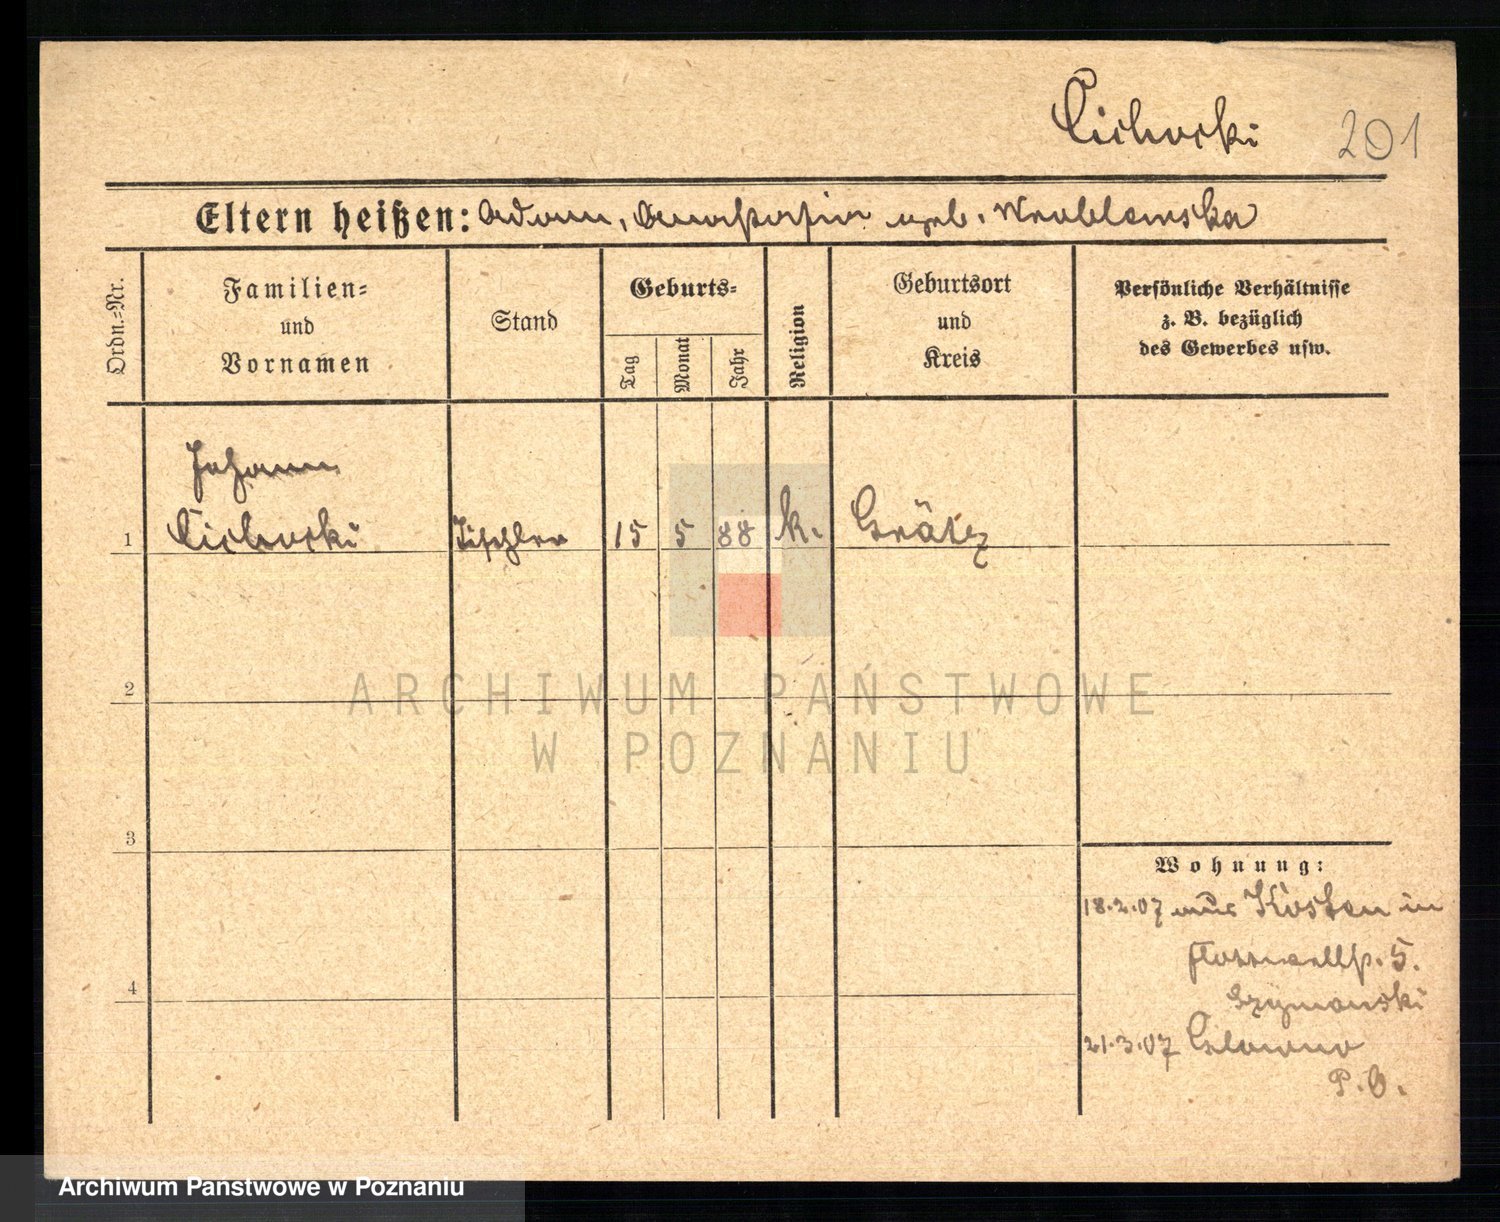 Cichocki 201
Eltern heißen: Adam, Anastasia geb. Wroblewska
Ordn.-Nr.
Familien-
und
Vornamen
Stand
Geburts-
Tag
Monat
Jahr
Religion
Geburtsort
und
Kreis
Persönliche Verhältnisse
z. B. bezüglich
des Gewerbes usw.
Johann
1 Cichocki Tischler 15 5 88 k. Grätz
2
ARCHIWUM PAŃSTWOWE
W POZNANIU
3
Wohnung:
18.2.07 aus Kosten in
5.
4
Szymanski
21.3.07 Glowno
P. O.
Archiwum Państwowe w Poznaniu